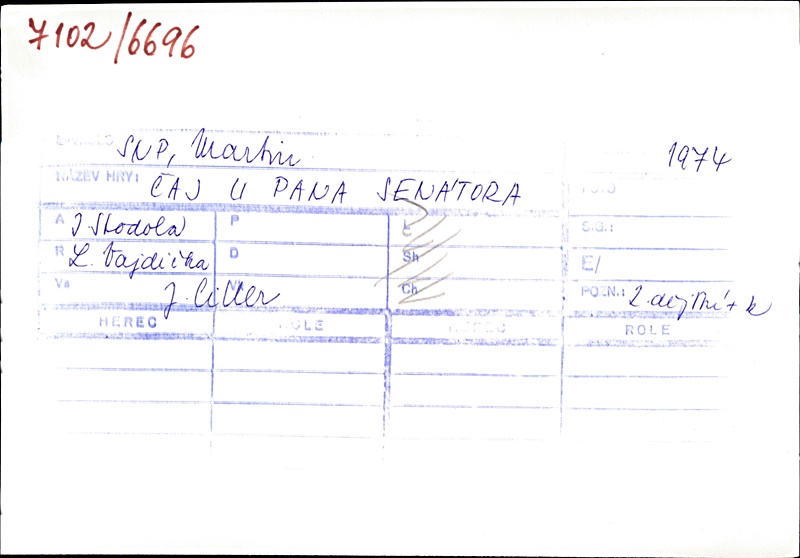 7102/6696
DIVADLO SNP, Martin 1974
NÁZEV HRY: ČAJ U PANA SENÁTORA FOTO
A J Stodola P L S.O.:
R L. Vajdička D Sh E/
Vs J. Ciller N Ch POZN.: 2. dejství + k
HEREC ROLE HEREC ROLE